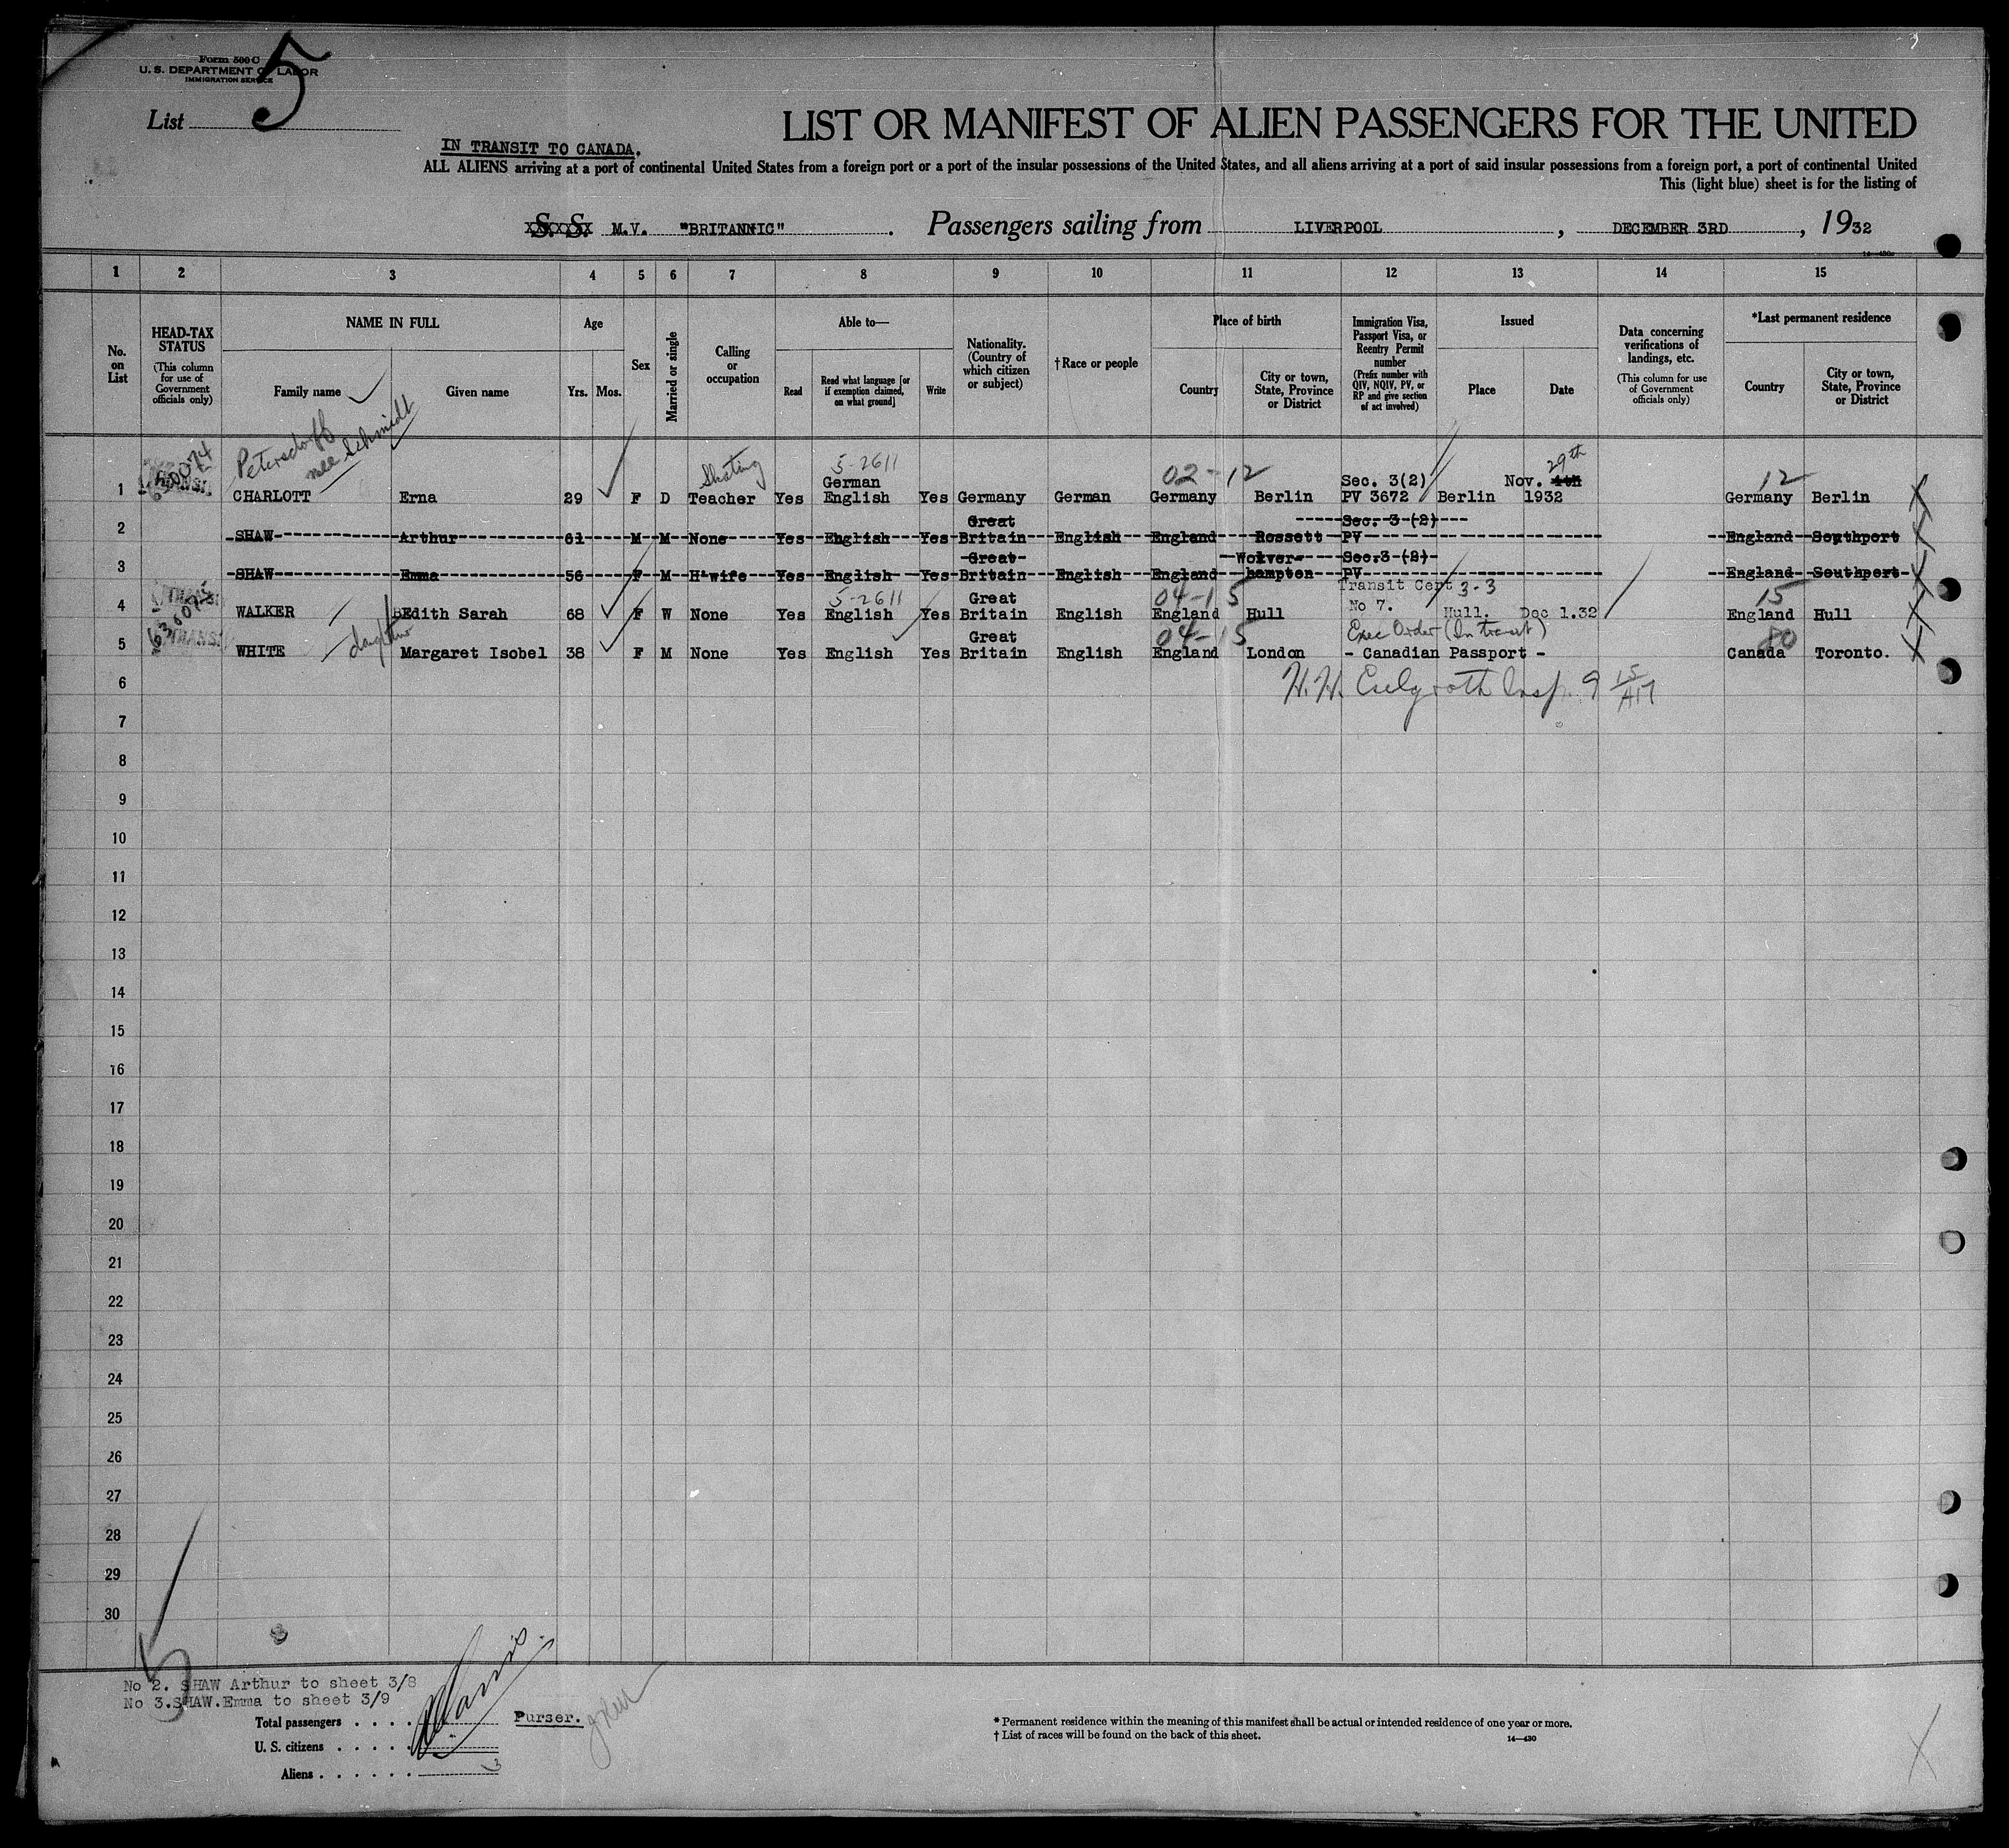 Form 500 C
U. S. DEPARTMENT OF LABOR
IMMIGRATION SERVICE
List 5
LIST OR MANIFEST OF ALIEN PASSENGERS FOR THE UNITED
IN TRANSIT TO CANADA.
ALL ALIENS arriving at a port of continental United States from a foreign port or a port of the insular possessions of the United States, and all aliens arriving at a port of said insular possessions from a foreign port, a port of continental United
This (light blue) sheet is for the listing of
S. S. M.V. "BRITANNIC" . Passengers sailing from LIVERPOOL , DECEMBER 3RD , 1932
1 2 3 4 5 6 7 8 9 10 11 12 13 14 15
No. on List
HEAD-TAX STATUS (This column for use of Government officials only)
NAME IN FULL
Family name
Given name
Age
Yrs. Mos.
Sex
Married or single
Calling or occupation
Able to—
Read
Read what language [or if exemption claimed, on what ground]
Write
Nationality. (Country of which citizen or subject)
†Race or people
Place of birth
Country
City or town, State, Province or District
Immigration Visa, Passport Visa, or Reentry Permit number (Prefix number with QIV, NQIV, PV, or RP and give section of act involved)
Issued
Place
Date
Data concerning verifications of landings, etc. (This column for use of Government officials only)
*Last permanent residence
Country
City or town, State, Province or District
Petersdorff
nee Schmidt
630074 Skating 5-2611 02-12 29th 12
German Sec. 3(2) Nov. 4th
1 CHARLOTT Erna 29 F D Teacher Yes English Yes Germany German Germany Berlin PV 3672 Berlin 1932 Germany Berlin
Great Sec. 3 (2)
2 SHAW Arthur 61 M M None Yes English Yes Britain English England Rossett PV England Southport
Great Wolver- Sec.3 (2)
3 SHAW Emma 56 F M H'wife Yes English Yes Britain English England hampton PV England Southport
630075 5-2611 Great 04-15 Transit Cert 3-3 15
4 WALKER Edith Sarah 68 F W None Yes English Yes Britain English England Hull No 7. Hull. Dec 1.32 England Hull
TRANSIT daughter Great 04-15 Exec Order (In transit) 80
5 WHITE Margaret Isobel 38 F M None Yes English Yes Britain English England London - Canadian Passport - Canada Toronto.
6
7
8
9
10
11
12
13
14
15
16
17
18
19
20
21
22
23
24
25
26
27
28
29
30
No 2. SHAW Arthur to sheet 3/8
No 3.SHAW.Emma to sheet 3/9
Total passengers . . . .
Purser.
U. S. citizens . . . . .
Aliens . . . . . . 3
* Permanent residence within the meaning of this manifest shall be actual or intended residence of one year or more.
† List of races will be found on the back of this sheet.
14—430